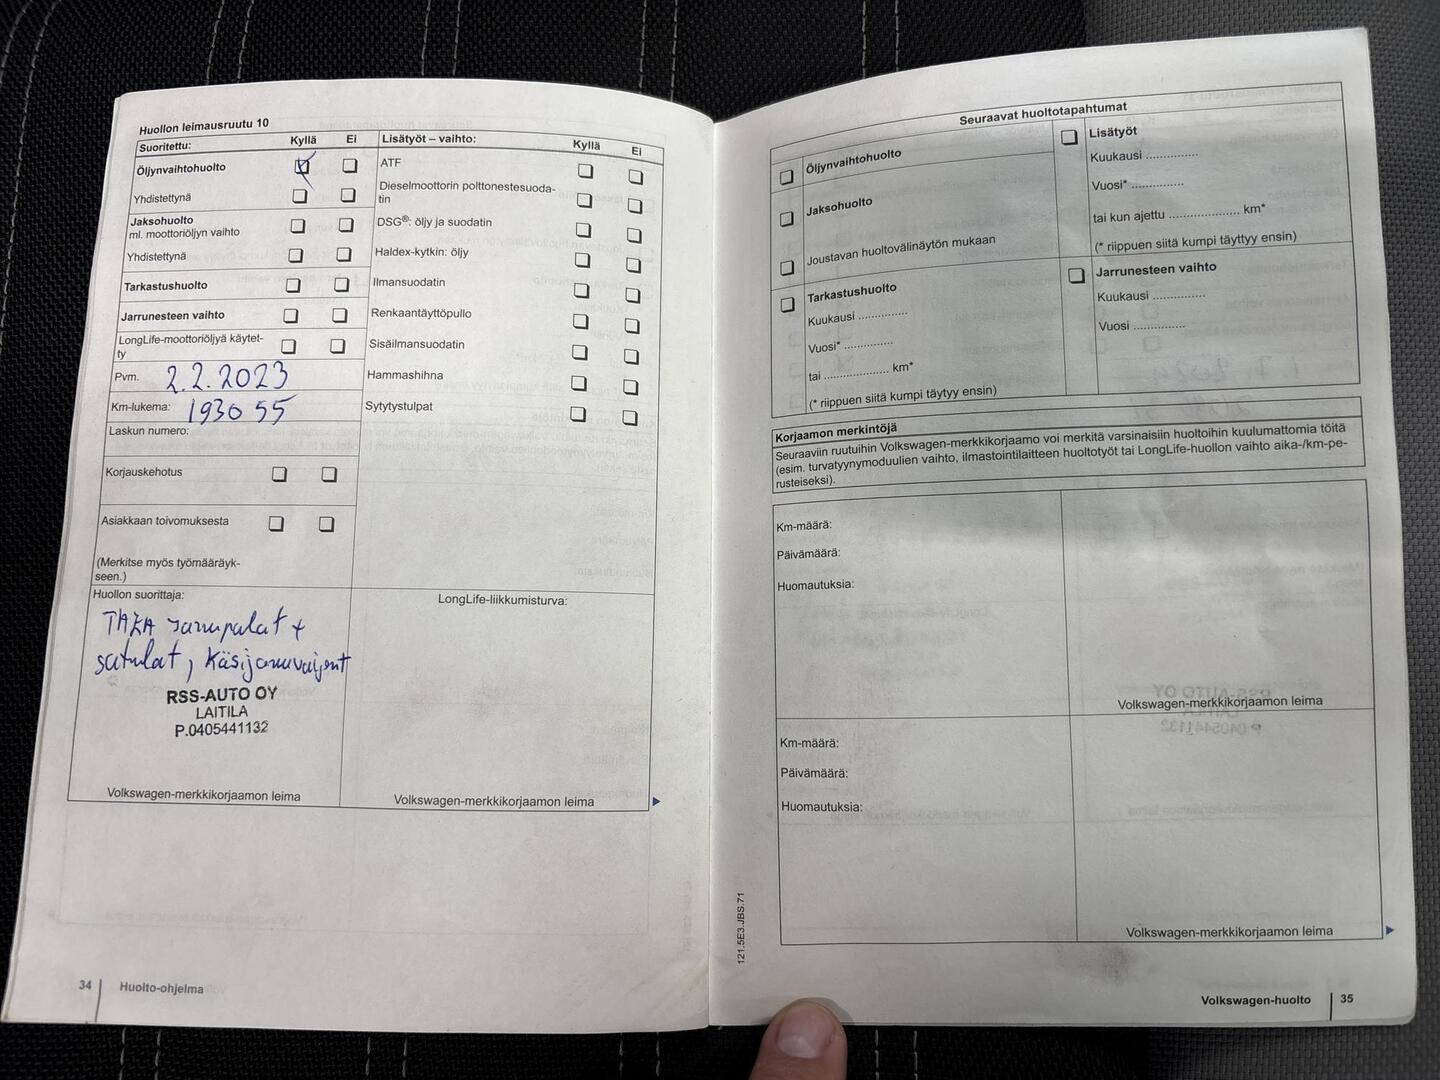 Huollon leimausruutu 10
Suoritettu: Kyllä Ei
Öljynvaihtohuolto
Yhdistettynä
Jaksohuolto
ml. moottoriöljyn vaihto
Yhdistettynä
Tarkastushuolto
Jarrunesteen vaihto
LongLife-moottoriöljyä käytet-
ty
Pvm. 2.2.2023
Km-lukema: 193055
Laskun numero:
Korjauskehotus
Asiakkaan toivomuksesta
(Merkitse myös työmääräyk-
seen.)
Huollon suorittaja:
TAKA jarrupalat +
satulat, käsijarruvaijerit
RSS-AUTO OY
LAITILA
P.0405441132
Volkswagen-merkkikorjaamon leima
Lisätyöt – vaihto: Kyllä Ei
ATF
Dieselmoottorin polttonestesuoda-
tin
DSG®: öljy ja suodatin
Haldex-kytkin: öljy
Ilmansuodatin
Renkaantäyttöpullo
Sisäilmansuodatin
Hammashihna
Sytytystulpat
LongLife-liikkumisturva:
Volkswagen-merkkikorjaamon leima
34 Huolto-ohjelma
Seuraavat huoltotapahtumat
Öljynvaihtohuolto
Jaksohuolto
Joustavan huoltovälinäytön mukaan
Tarkastushuolto
Kuukausi ..............
Vuosi* ..............
tai .................... km*
(* riippuen siitä kumpi täytyy ensin)
Lisätyöt
Kuukausi ..............
Vuosi* ..............
tai kun ajettu .................... km*
(* riippuen siitä kumpi täyttyy ensin)
Jarrunesteen vaihto
Kuukausi ..............
Vuosi ..............
Korjaamon merkintöjä
Seuraaviin ruutuihin Volkswagen-merkkikorjaamo voi merkitä varsinaisiin huoltoihin kuulumattomia töitä
(esim. turvatyynymoduulien vaihto, ilmastointilaitteen huoltotyöt tai LongLife-huollon vaihto aika-/km-pe-
rusteiseksi).
Km-määrä:
Päivämäärä:
Huomautuksia:
Volkswagen-merkkikorjaamon leima
Km-määrä:
Päivämäärä:
Huomautuksia:
Volkswagen-merkkikorjaamon leima
121.5E3.JBS.71
Volkswagen-huolto 35